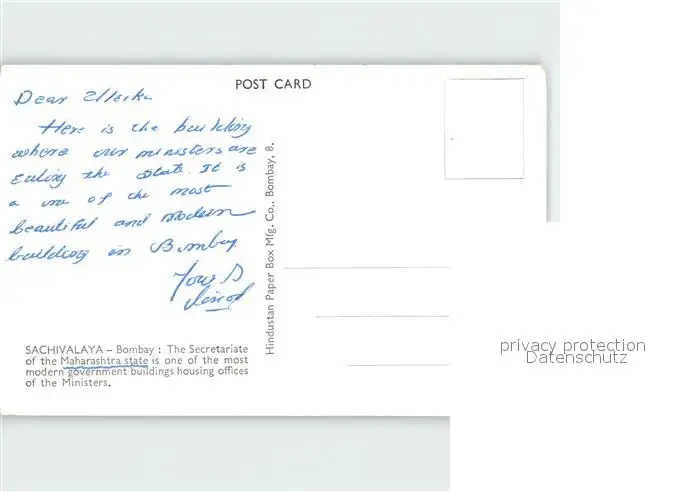 POST CARD
Dear Ulrike
Here is the building
where our ministers are
Ealing the State. It is
a one of the most
beautiful and modern
building in Bombay
Yours
Vinod
SACHIVALAYA – Bombay : The Secretariate
of the Maharashtra state is one of the most
modern government buildings housing offices
of the Ministers.
Hindustan Paper Box Mfg. Co., Bombay, 8.
privacy protection
Datenschutz